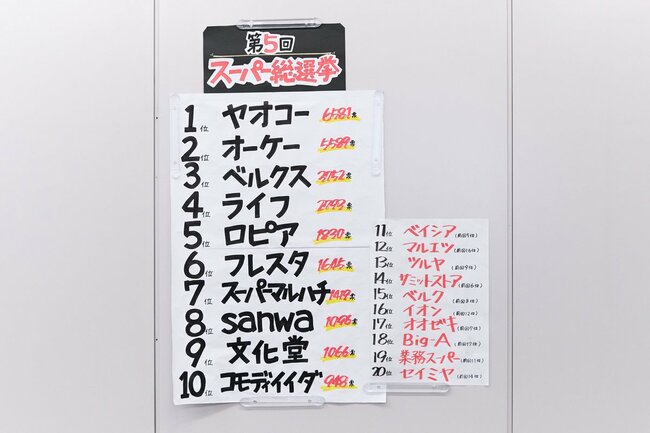 第5回
スーパー総選挙
1位 ヤオコー 6581票
2位 オーケー 5589票
3位 ベルクス 3752票
4位 ライフ 2793票
5位 ロピア 1830票
6位 フレスタ 1645票
7位 スーパーマルハチ 1419票
8位 sanwa 1096票
9位 文化堂 1066票
10位 コモディイイダ 948票
11位 ベイシア (前回5位)
12位 マルエツ (前回16位)
13位 ツルヤ (前回9位)
14位 サミットストア (前回6位)
15位 ベルク (前回8位)
16位 イオン (前回12位)
17位 オオゼキ
18位 Big-A
19位 業務スーパー (前回11位)
20位 セイミヤ (前回14位)